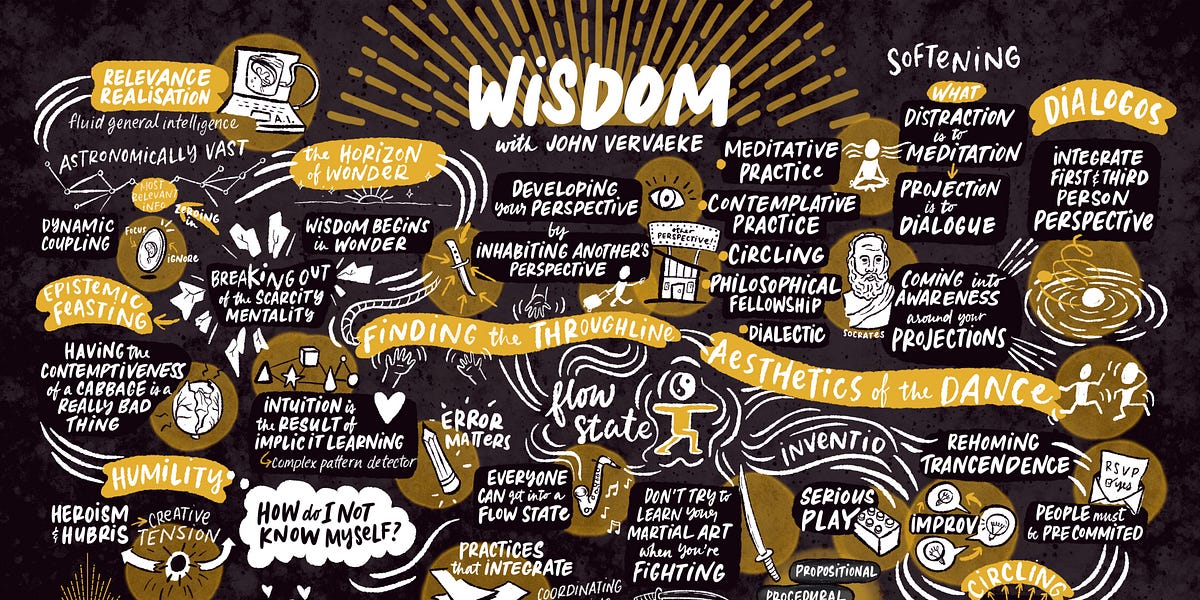 WiSDOM
with JOHN VERVAEKE
RELEVANCE
REALISATION
fluid general intelligence
A.I.
ASTRONOMICALLY VAST
MOST
RELEVANT
INFO
ZEROING
in
DYNAMIC
COUPLING
FOCUS
IGNORE
the HORIZON
of WONDER
WISDOM BEGINS
in WONDER
BREAKiNG OUT
of the SCARCITY
MENTALITY
EPISTEMIC
FEASTING
HAVING the
CONTEMPTIVENESS
of a CABBAGE is a
REALLY BAD
THING
INTUITION is
the RESULT of
IMPLICIT LEARNING
complex pattern detector
HUMILITY
HEROISM
& HUBRIS
CREATIVE
TENSION
HOW do I NOT
KNOW MYSELF?
DEVELOPING
your PERSPECTIVE
by
INHABITING ANOTHER'S
PERSPECTIVE
other
PERSPECTIVE!
FiNDING the THROUGHLINE
flow
state
ERROR
MATTERS
EVERYONE
CAN get into a
FLOW STATE
PRACTICES
that INTEGRATE
COORDINATING
DON'T TRY to
LEARN your
MARTIAL ART
when YOU'RE
FiGHTING
MEDITATIVE
PRACTICE
CONTEMPLATIVE
PRACTICE
CiRCLING
PHILOSOPHICAL
FELLOWSHIP
DIALECTIC
SOCRATES
SOFTENING
WHAT
DISTRACTION
is to
MEDITATION
PROJECTION
is to
DIALOGUE
COMING into
AWARENESS
around your
PROJECTIONS
DiALOGOS
INTEGRATE
FIRST & THIRD
PERSON
PERSPECTIVE
AESTHETICS of the DANCE
INVENTIO
REHOMING
TRANCENDENCE
RSVP
yes
PEOPLE must
be PRECOMMITED
SERIOUS
PLAY
IMPROV
CIRCLING
PROPOSITIONAL
PROCEDURAL